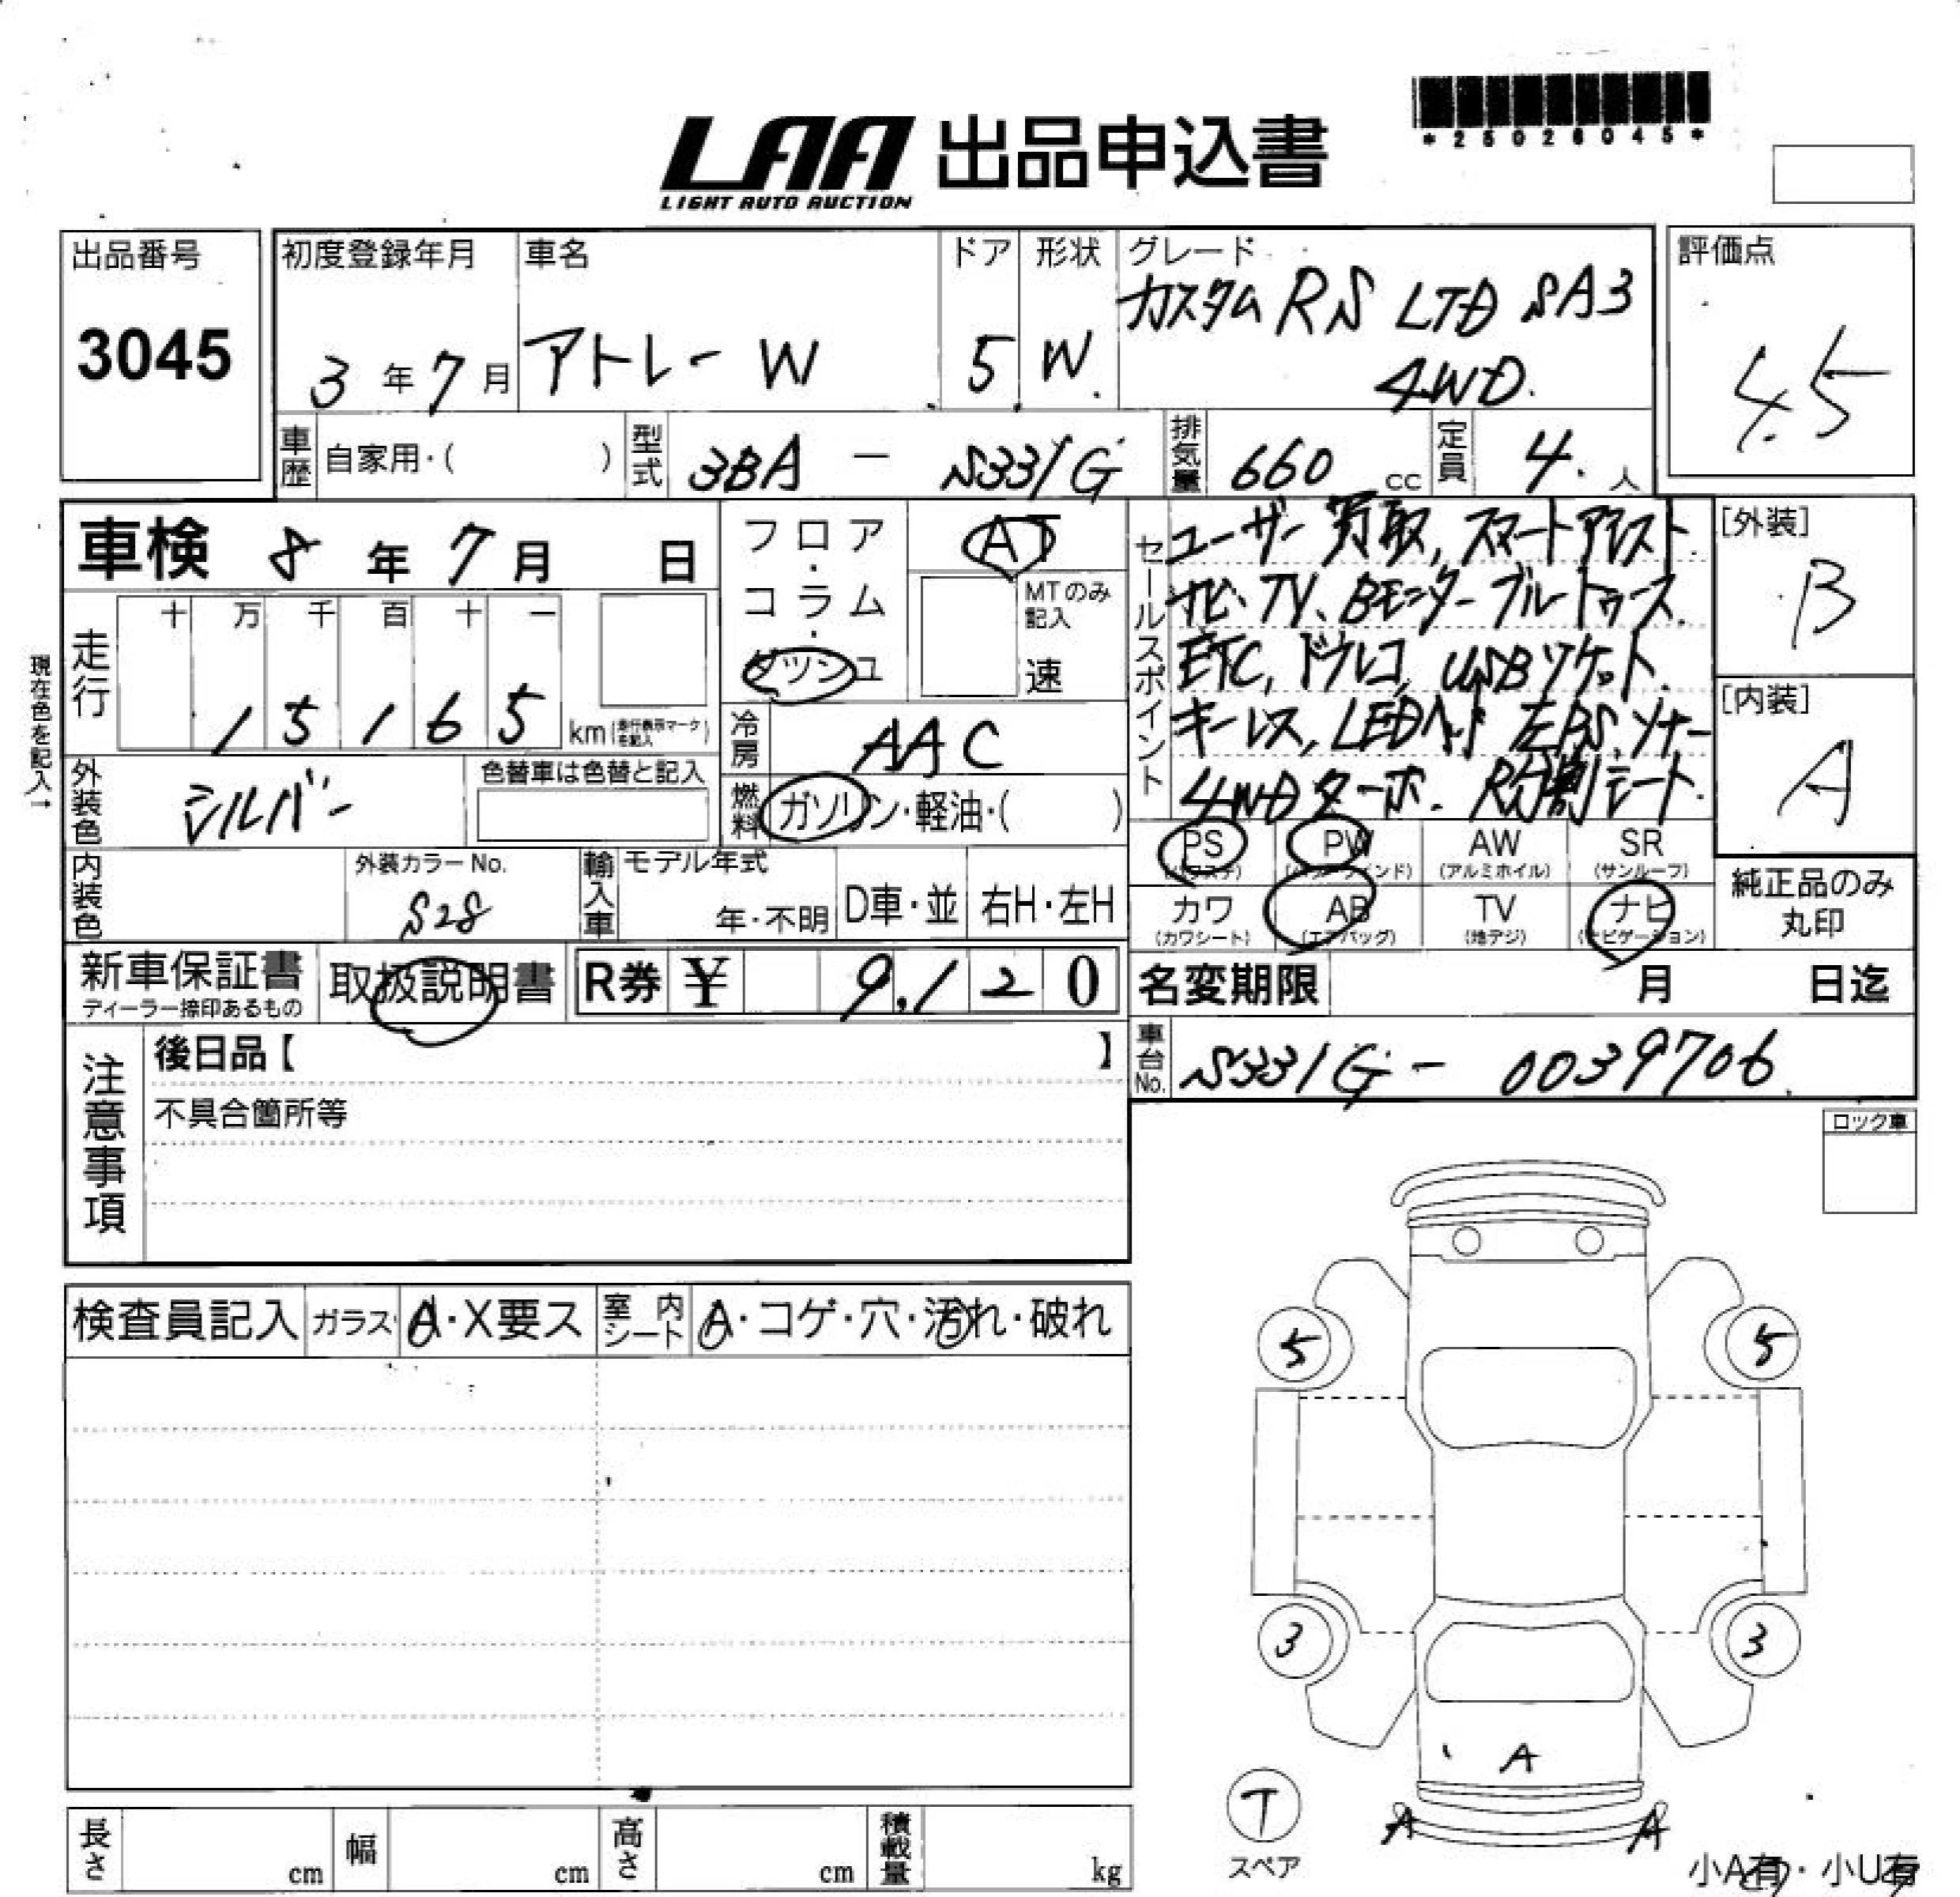 *25026045*
LAA 出品申込書
LIGHT AUTO AUCTION
出品番号
3045
初度登録年月
3年7月
車名
アトレーW
ドア
5
形状
W.
グレード
カスタム RS LTD SA3
4WD.
評価点
4.5
車歴 自家用・( )
型式 3BA － S331G
排気量 660 cc
定員 4. 人
車検 8年7月 日
フロア・コラム・ダッシュ
AT
MTのみ記入
速
走行
十 万 千 百 十 一
1 5 1 6 5
km
現在色を記入→
冷房 AAC
外装色 シルバー
色替車は色替と記入
燃料 ガソリン・軽油・( )
内装色
外装カラーNo.
S28
輸入車
モデル年式
年・不明
D車・並
右H・左H
セールスポイント
ユーザー買取,スマートアシスト.
ナビ、TV、Bモニターブルートゥース.
ETC,ドラレコ,USBソケット.
キーレス,LEDヘッド 左PS.ソナー
4WDターボ. R分割シート.
[外装]
B
[内装]
A
PS PW AW SR
(パワステ) (パワーウインド) (アルミホイル) (サンルーフ)
カワ AB TV ナビ
(カワシート) (エアバッグ) (地デジ) (ナビゲーション)
純正品のみ
丸印
新車保証書
ディーラー捺印あるもの
取扱説明書
R券 ¥ 9,120
名変期限 月 日迄
車台No. S331G - 0039706
注意事項
後日品【 】
不具合箇所等
ロック車
検査員記入
ガラス A・X要ス
室内シート A・コゲ・穴・汚れ・破れ
5 5
3 3
A
T
スペア
A A
小A有・小U有
長さ cm
幅 cm
高さ cm
積載量 kg